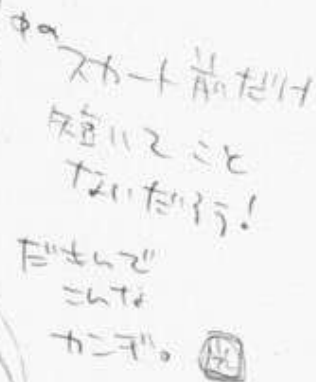 スカート前だけ
短いてこと
ないだろう!
だせんで
こんな
カンジ。